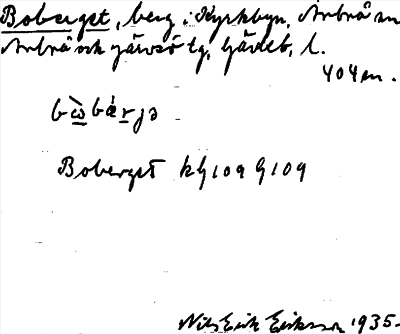 Boberget, berg i Kyrkbyn, Arbrå sn
Arbrå och Järvsö tg, Gävleb. l.
404 m.
bὼbárjə
Boberget kG109 G109
Nils Erik Eriksson 1935.